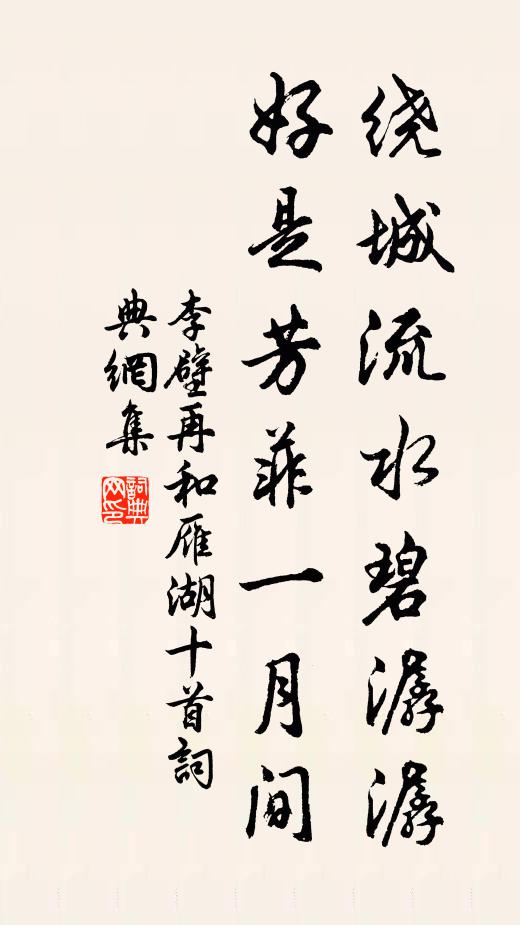 绕城流水碧潺潺
好是芳菲一月间
李壁再和雁湖十首詞
典網集
詞典
网印